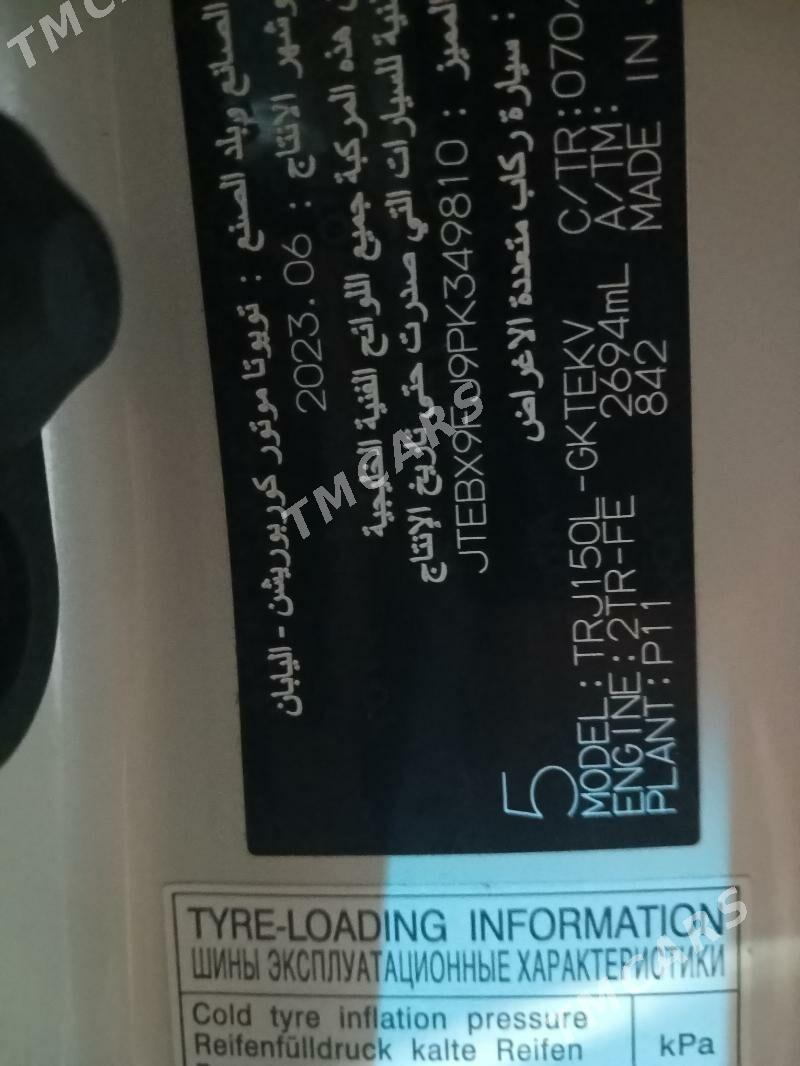 TMCARS
الصانع وبلد الصنع : تويوتا موتور كوربوريشن - اليابان
وشهر الانتاج : 2023.06
هذه المركبة جميع اللوائح الفنية الخليجية
للسيارات التي صدرت حتى تاريخ الإنتاج
المميز : JTEBX9FJ9PK349810
: سيارة ركاب متعددة الاغراض
5
MODEL : TRJ150L-GKTEKV C/TR: 070
ENGINE : 2TR-FE 2694mL A/TM:
PLANT : P11 842 MADE IN
TMCARS
TYRE-LOADING INFORMATION
ШИНЫ ЭКСПЛУАТАЦИОННЫЕ ХАРАКТЕРИСТИКИ
TMCARS
Cold tyre inflation pressure
Reifenfülldruck kalte Reifen
kPa